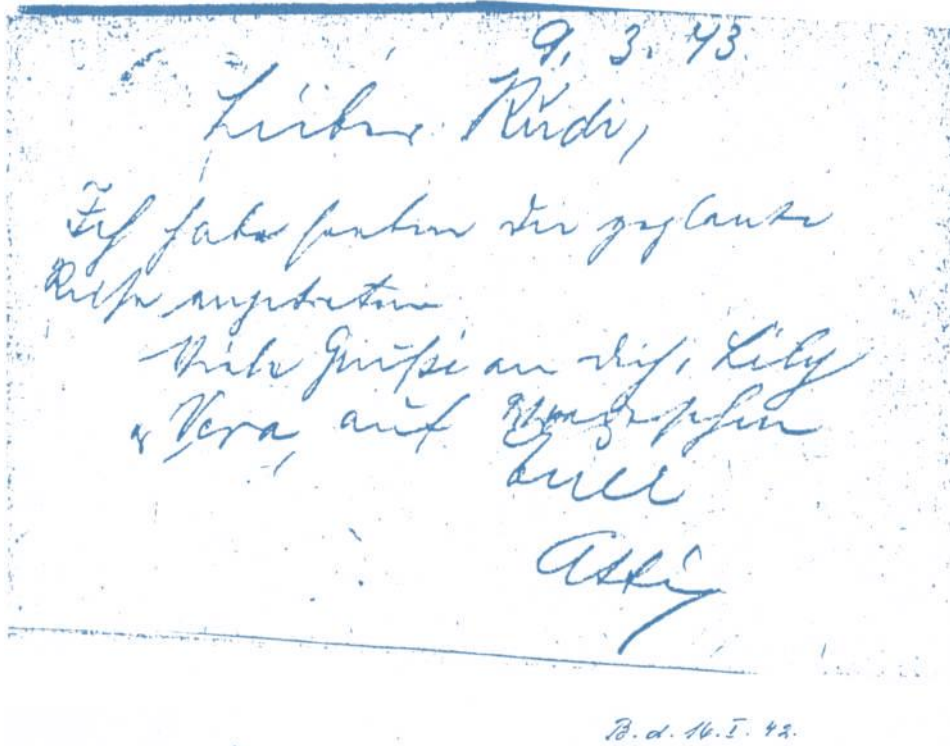 9. 3. 43.
Lieber Rudi,
Ich habe soeben die geplante
Reise angetreten
Viele Grüße an dich, Lily
u Vera, auf
Euer
B. d. 16. I. 42.